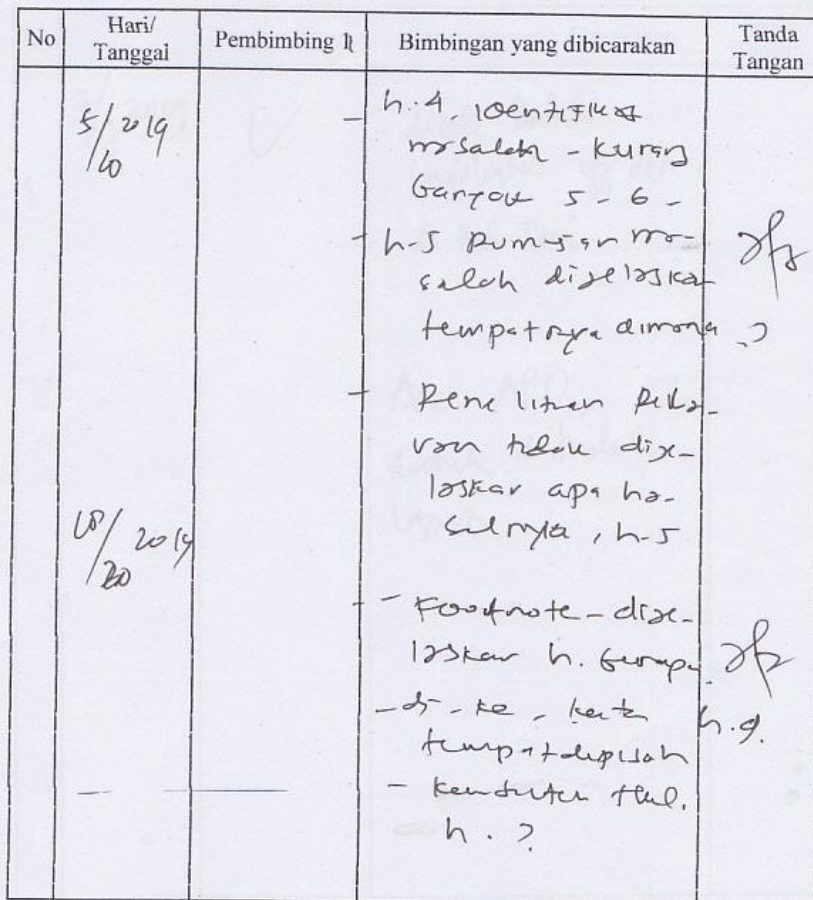 No Hari/ Tanggal Pembimbing 1 Bimbingan yang dibicarakan Tanda Tangan
5/2019
/10
- h.4. identifikasi
masalah - kurang
5 - 6 -
- h-5 Rumusan ma-
salah dijelaskan
tempatnya dimana ?
- Penelitian Rele-
van tidak dije-
laskan apa ha-
silnya, h-5
/2019
- Footnote - dije-
laskan h. berapa
- di - ke - kata h.9.
tempat dipisah
-
h. ?